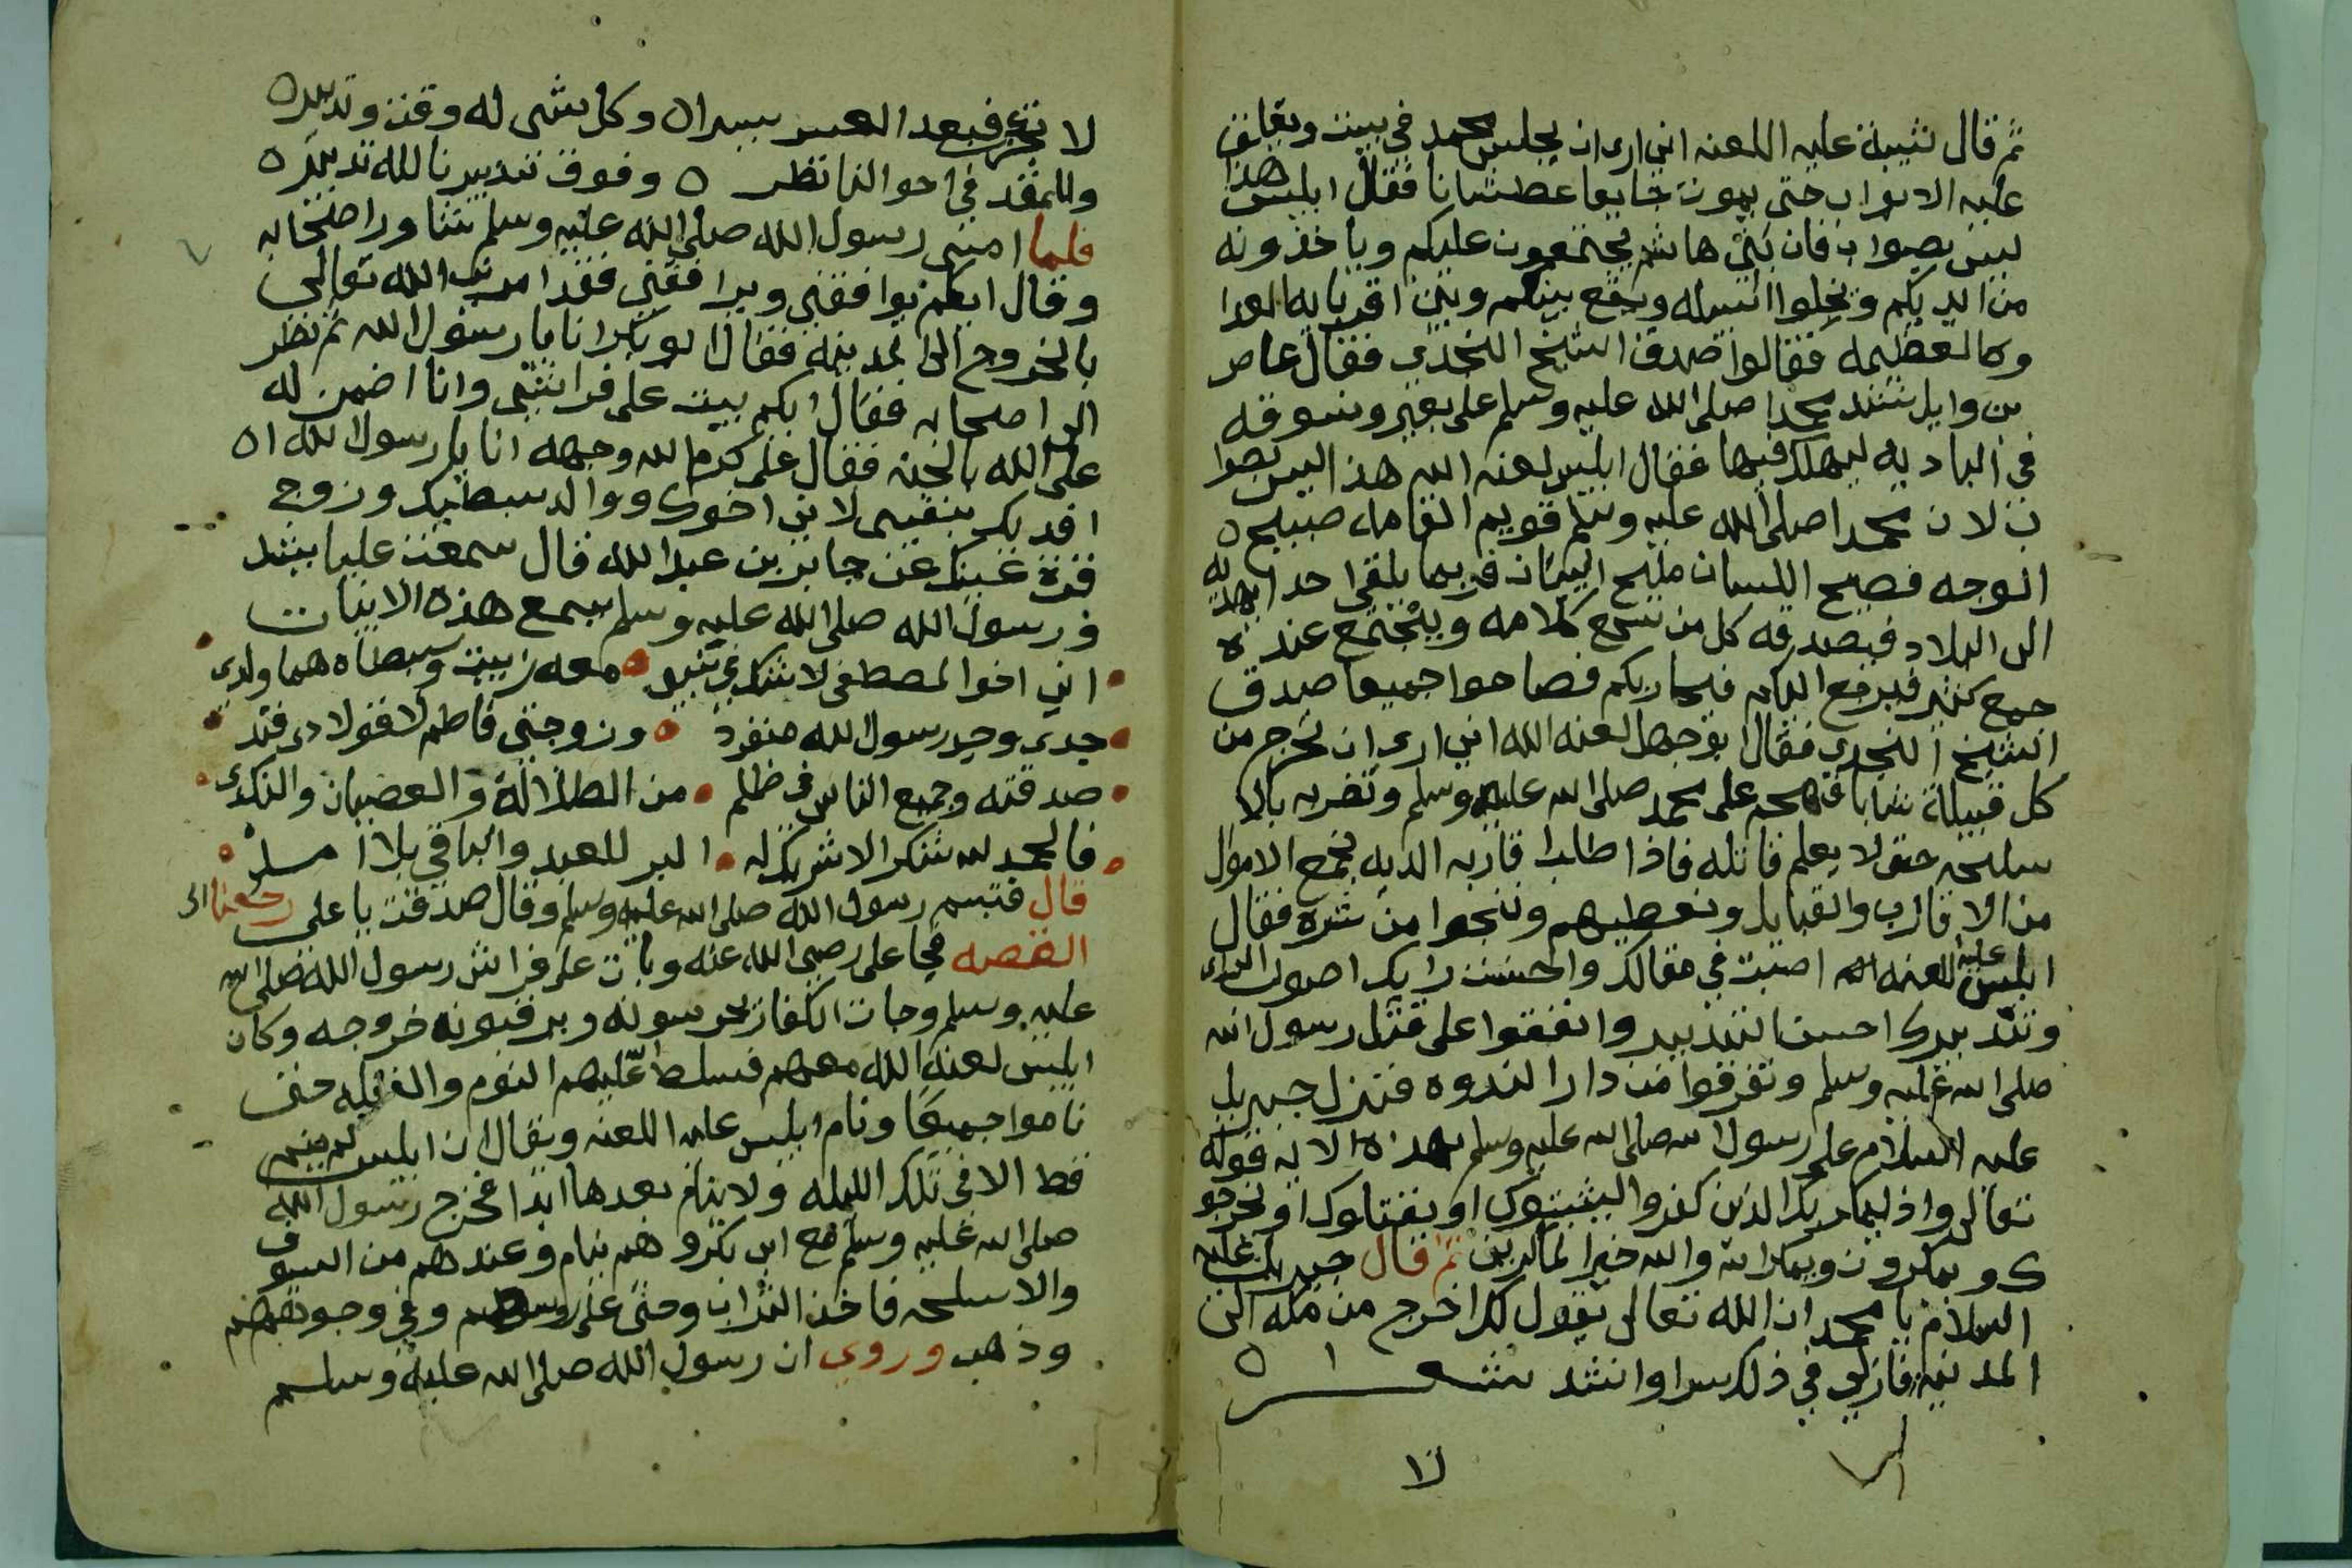 ثم قال شيبة عليه اللعنه اني ارى ان يجلس محمد في بيت ويغلق
عليه الابواب حتى يموت جايعا عطشانا فقال ابليس هذا
ليس بصواب فان بني هاشم يجتمعون عليكم وياخذونه
من ايديكم ويخلوا سبيله ويقع بينكم وبين اقربايه العدا
وه العظيمه فقالوا صدق الشيخ النجدي فقال عاص
بن وايل نشد محمدا صلى الله عليه وسلم على بعير ونسوقه
في الباديه ليهلك فيها فقال ابليس لعنه الله هذا ليس بصوا
ب لان محمدا صلى الله عليه وسلم قويم القامه صبيح
الوجه فصيح اللسان مليح البيان فربما يلقى احدا يهديه
الى البلاد فيصدقه كل من سمع كلامه ويجتمع عنده
جمع كثير فيرجع اليكم فيحاربكم فصاحوا جميعا صدق
الشيخ النجدي فقال ابو جهل لعنه الله اني ارى ان نخرج من
كل قبيلة شابا فهجم على محمد صلى الله عليه وسلم ونضربه بالا
سلحه حتى لا يعلم قاتله فاذا طالب اقاربه الديه نجمع الاموال
من الاقارب والقبايل ونعطيهم وننجوا من شره فقال
ابليس عليه لعنه الله اصبت في مقالك واحسنت رايك اصوب الراى
وتدبيرك احسن التدبير واتفقوا على قتل رسول الله
صلى الله عليه وسلم وتفرقوا من دار الندوه فنزل جبريل
عليه السلام على رسول الله صلى الله عليه وسلم بهذه الايه قوله
تعالى واذ يمكر بك الذين كفروا ليثبتوك او يقتلوك او يخرجو
ك ويمكرون ويمكر الله والله خير الماكرين ثم قال جبريل عليه
السلام يا محمد ان الله تعالى يقول لك اخرج من مكه الى
المدينه فان لي في ذلك سرا وانشد شعر
لا
لا تجزع فبعد العسر يسرا وكل شى له وقت وتدبير
وللمقدر في احوالنا نظر وفوق تدبيرنا لله تدبير
فلما امسى رسول الله صلى الله عليه وسلم شاور اصحابه
وقال ايكم يوافقني ويرافقني فقد امرني الله تعالى
بالخروج الى المدينه فقال ابو بكر انا يا رسول الله ثم نظر
الى اصحابه فقال ايكم يبيت على فراشي وانا اضمن له
على الله بالجنه فقال على كرم الله وجهه انا يا رسول الله
افديك بنفسى لاني اخوك ووالد سبطيك وزوج
قرة عينك عن جابر بن عبد الله قال سمعت عليا ينشد
ورسول الله صلى الله عليه وسلم يسمع هذه الابيات
اني اخو المصطفى لا شك في نسبي معه ربيت وسبطاه هما ولدى
جدى وجد رسول الله منفرد وزوجتي فاطم لا قول ذى فند
صدقته وجميع الناس في ظلم من الضلالة والعصيان والنكد
فالحمد لله شكرا لا شريك له البر للعبد والباقي بلا امد
قال فتبسم رسول الله صلى الله عليه وسلم وقال صدقت يا على رجعنا الى
القصه فجا على رضي الله عنه وبات على فراش رسول الله صلى الله
عليه وسلم وجات الكفار يحرسونه ويرقبونه خروجه وكان
ابليس لعنه الله معهم فسلط عليهم النوم والغفله حتى
ناموا جميعا ونام ابليس عليه اللعنه ويقال ان ابليس لم ينم
قط الا في تلك الليله ولا ينام بعدها ابدا فخرج رسول الله
صلى الله عليه وسلم مع ابى بكر وهم نيام وعندهم من السيوف
والاسلحه فاخذ التراب وحثى على روسهم وفي وجوههم
وذهب وروي ان رسول الله صلى الله عليه وسلم